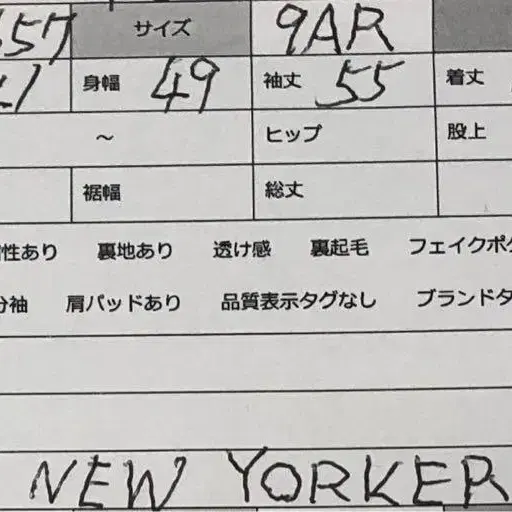 57 サイズ 9AR
身幅 49 袖丈 55 着丈
～ ヒップ 股上
裾幅 総丈
性あり 裏地あり 透け感 裏起毛 フェイクポケ
分袖 肩パッドあり 品質表示タグなし ブランドタ
NEW YORKER